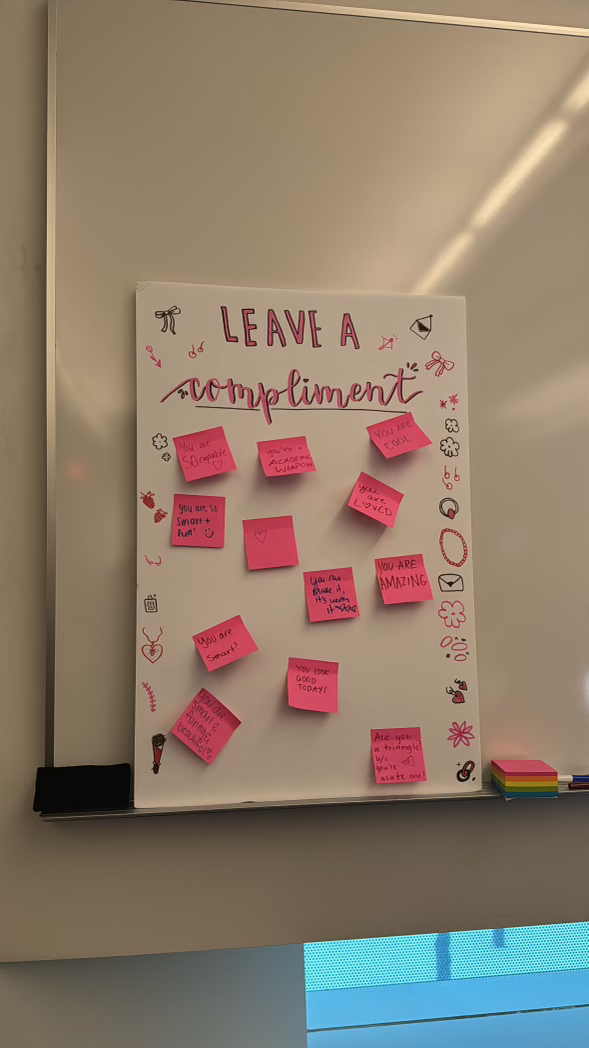 LEAVE A
compliment
You are
SO capable
you're a
ACADEMIC
WEAPON
YOU ARE
COOL
you are
LOVED
you are so
smart +
fun!
You can
make it,
it's worth
it
YOU ARE
AMAZING
You are
smart!
YOU LOOK
GOOD
TODAY!
You are
smart &
funny &
beautiful
Are you
a triangle?
b/c
you're
acute one!